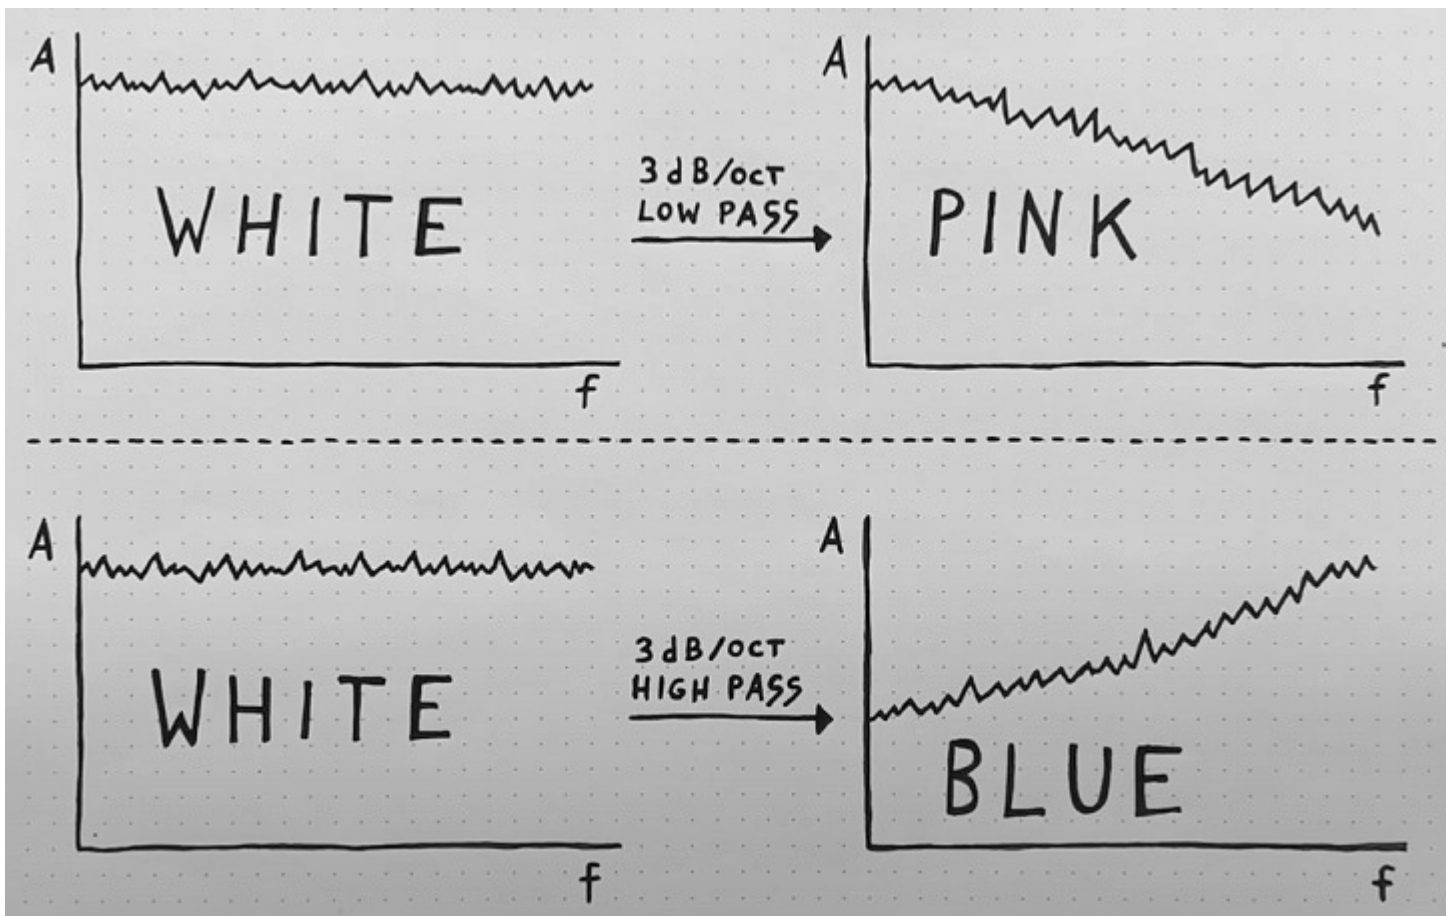 A
WHITE
f
3 dB/OCT
LOW PASS
A
PINK
f
A
WHITE
f
3 dB/OCT
HIGH PASS
A
BLUE
f